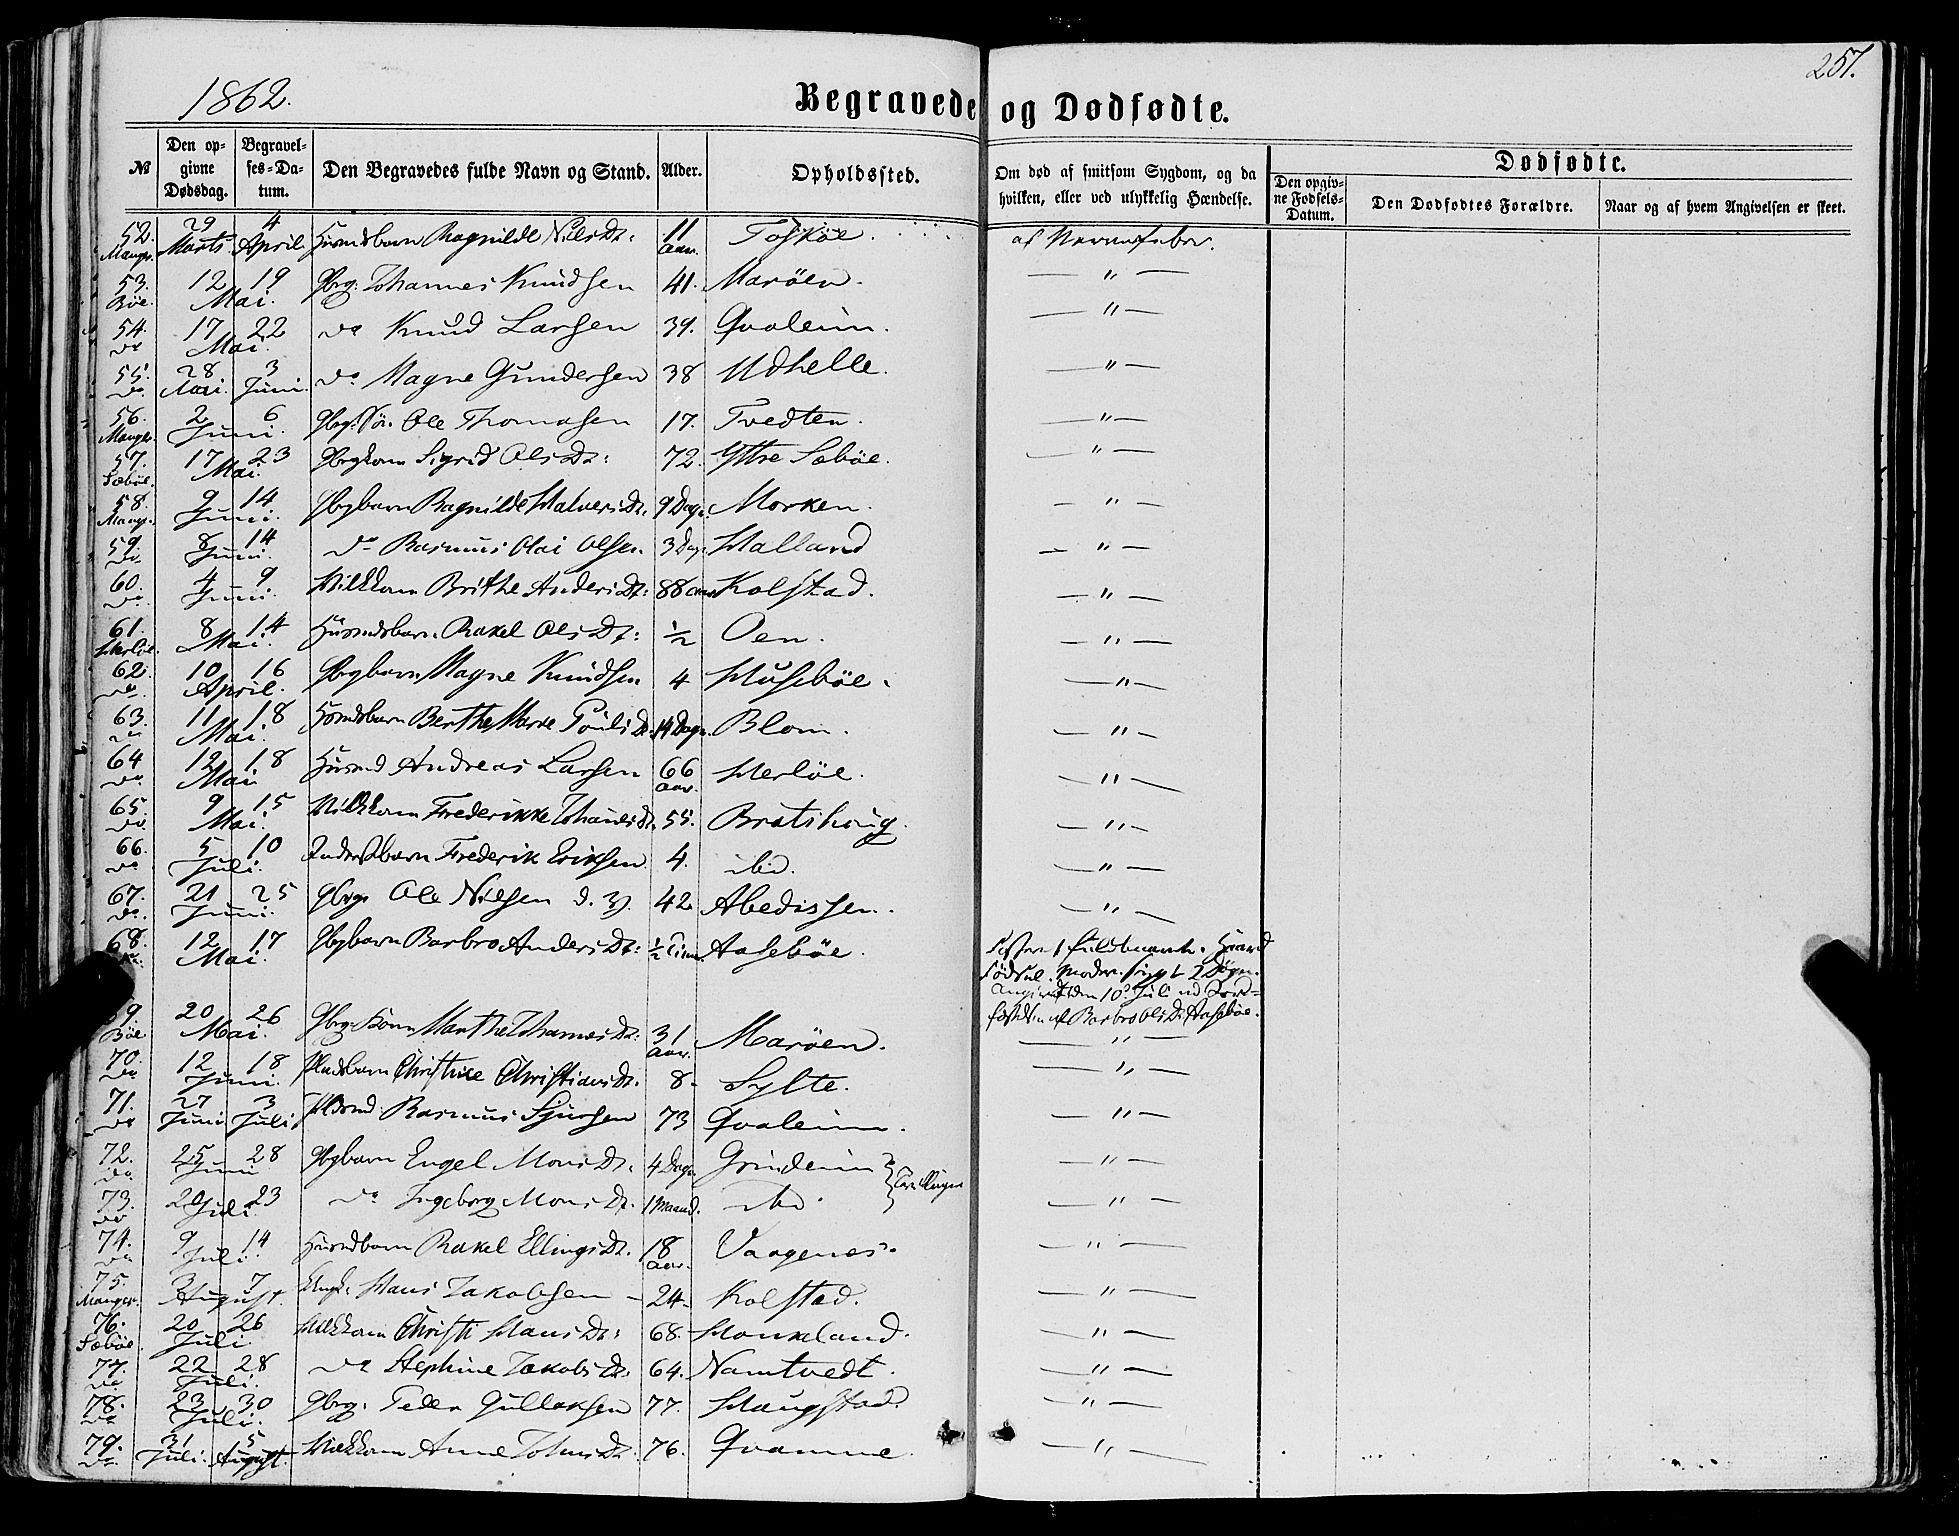 257.
1862.
Begravede og Dødfødte.
№ Den opgivne Dødsdag. Begravelses-Datum. Den Begravedes fulde Navn og Stand. Alder. Opholdssted. Om død af smitsom Sygdom, og da hvilken, eller ved ulykkelig Hændelse. Dødfødte. Den opgivne Fødsels-Datum. Den Dødfødtes Forældre. Naar og af hvem Angivelsen er skeet.
52. Manger. 29 Marts 4 April Huusmdsbarn Ragnilde NilsDr: 11 Aar. Toskøe. af Nervefeber.
53. Bøe. 12 19 Mai. Gbrg: Johannes Knudsen 41. Marøen. — " —
54. do 17 22 Mai. do Knud Larsen 39. Qvaleim. — " —
55. do 28 Mai. 3 Juni. do Magne Gundersen 38 Udhelle. — " —
56. Manger. 2 6 Juni. Gbrg: Søn Ole Thomasen 17. Tvedten. — " —
57. Sæbøe. 17 23 Mai. Gbrgkone Sigrid OlsDr: 72. Yttre Sæbøe. — " —
58. Manger. 9 14 Juni. Gbrgbarn Ragnilde HalversDr. 9 Dage. Morken. — " —
59. do 8 14 Juni. do Rasmus Olai Olsen. 3 Dage Halland — " —
60. do 4 9 Juni. Vilkkone Brithe AndersDr: 88 Aar Kolstad. — " —
61. Herløe. 8 14 Mai. Huusmdsbarn. Rakel OlsDr: ½ Oen. — " —
62. do 10 16 April. Gbrgbarn Magne Knudsen 4 Husebøe. — " —
63. do 11 18 Mai. Huusmdsbarn Berthe Marie PoulsDr. 14 Dage. Blom. — " —
64 do 12 18 Mai Huusmd Andreas Larsen 66 Aar. Herløe. — " —
65. do 9 15 Mai. Vilkkone Frederikke JohannesDr. 55. Bratshoug. — " —
66. do 5 10 Juli. Frederik Eriksen 4. ibid. — " —
67. do. 21 25 Juni. Gbrg: Ole Nilsen d. 3) 42 Abedissen. — " —
68. do. 12 17 Mai. Gbrgbarn Barbro AndersDr: ½ Time. Aasebøe. Haard Fødsel. Moder. 2 Døgn. Angivet den 10de Juli Barbro OlsDr Aasebøe.
69. Bøe 20 26 Mai. Gbrg: Kone Marthe JohannesDr: 31 Aar. Marøen. — " —
70. do 12 18 Juni. Pladsbarn Christine ChristiansDr. 8. Sylte. — " —
71. do 27 Juni 3 Juli Rasmus Sjursen 73 Qvaleim. — " —
72. do. 25 28 Juni Gbrgbarn Engel MonsDr. 4 Dage Grindeim } Tvillinger — " —
73. do 20 23 Juli. do Ingeborg MonsDr. 1 Maaned. ibid } — " —
74. do 9 14 Juli. Huusmdbarn Rakel EllingsDr. 18 Aar. Vaagenes. — " —
75. Manger. 3 7 August. Ungk: Hans Jakobsen — 24. Kolstad. — " —
76. Sæbøe. 20 26 Juli. Vilkkone Christi HansDr: 68. Houkeland. — " —
77. do 22 28 Juli. do Stephine JakobsDr. 64. Namtvedt. — " —
78. do 23 30 Juli. Gbrg: Peder Gullaksen 77. Haugstad. — " —
79. do. 31 Juli. 5 August. Vilkkone Anne JohnsDr. 76. Qvamme. — " —